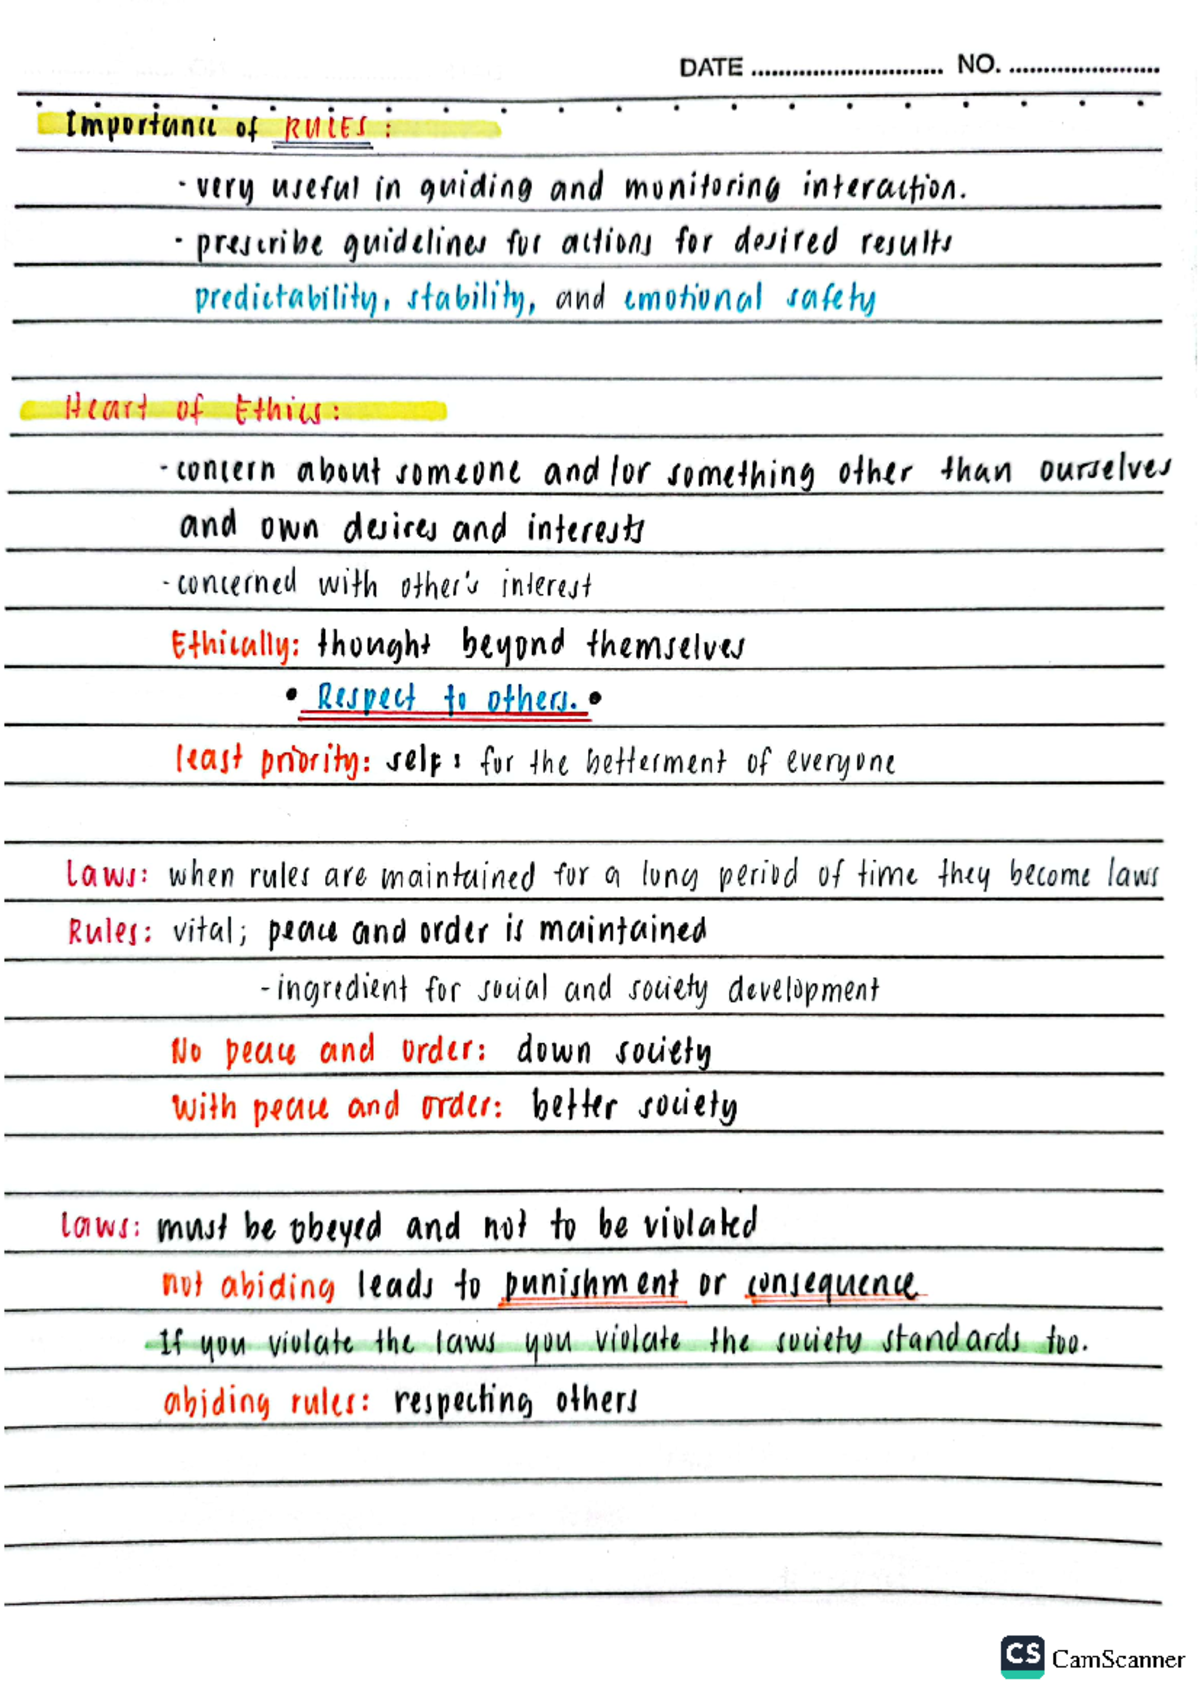 DATE ............................ NO. ......................
Importance of RULES :
- very useful in guiding and monitoring interaction.
- prescribe guidelines for actions for desired results
predictability, stability, and emotional safety
Heart of Ethics :
- concern about someone and/or something other than ourselves
and own desires and interests
- concerned with other's interest
Ethically: thought beyond themselves
• Respect to others. •
least priority: self : for the betterment of everyone
Laws: when rules are maintained for a long period of time they become laws
Rules: vital; peace and order is maintained
- ingredient for social and society development
No peace and order: down society
With peace and order: better society
Laws: must be obeyed and not to be violated
not abiding leads to punishment or consequence
If you violate the laws you violate the society standards too.
abiding rules: respecting others
CS CamScanner